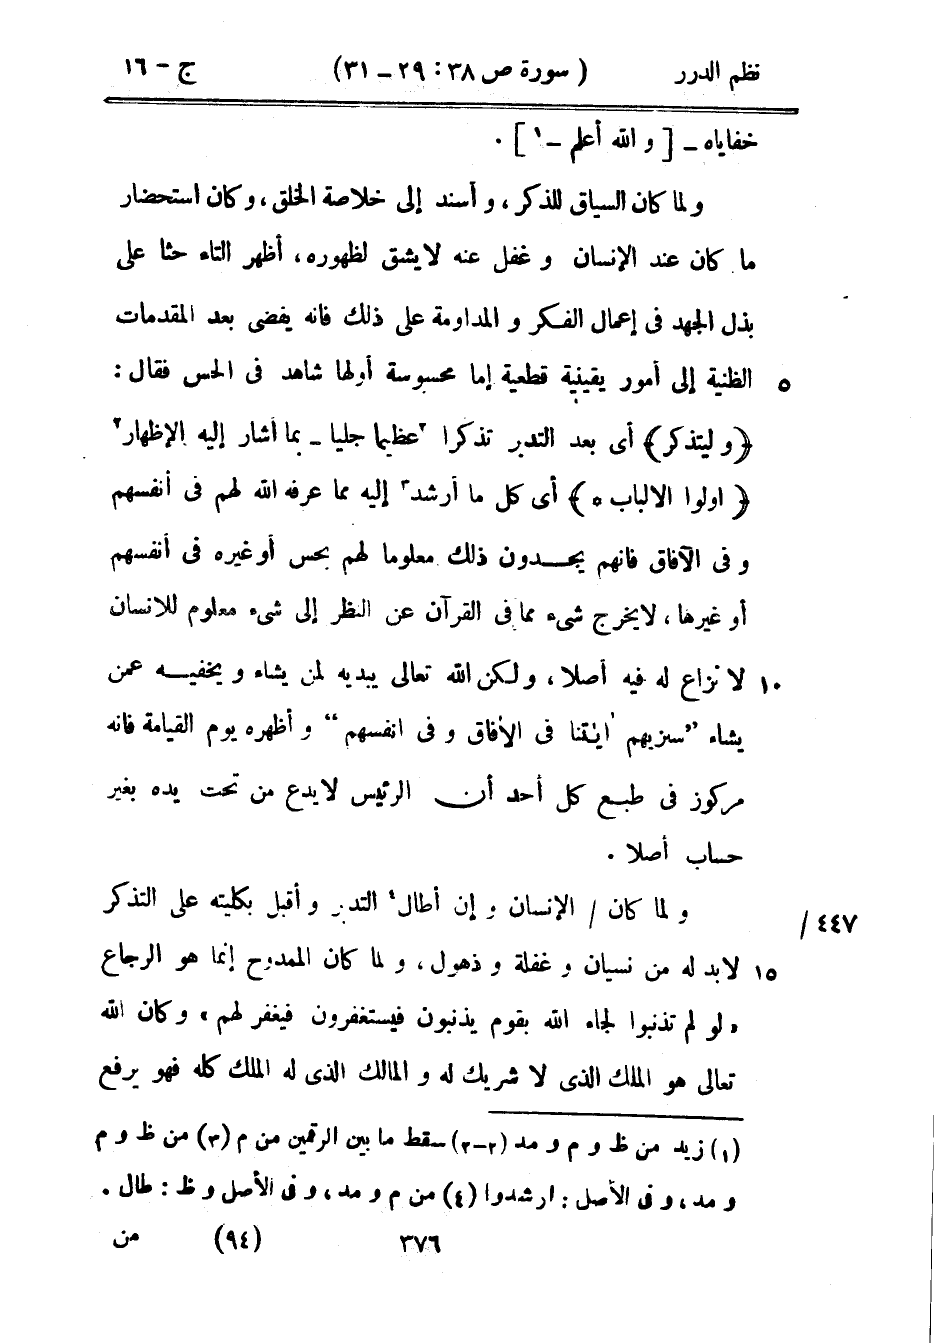 نظم الدرر ( سورة ص ٣٨: ٢٩ – ٣١) ج – ١٦
خفاياه – [ و الله أعلم – ١] .
و لما كان السياق للذكر، و أسند إلى خلاصة الخلق، و كان استحضار
ما كان عند الإنسان و غفل عنه لا يشق لظهوره، أظهر التاء حثا على
بذل الجهد فى إعمال الفكر و المداومة على ذلك فانه يفضى بعد المقدمات
٥ الظنية إلى أمور يقينية قطعية إما محسوسة أولها شاهد فى الحس فقال :
﴿و ليتذكر﴾ أى بعد التدبر تذكرا ٢عظيما جليا – بما أشار إليه الإظهار٢
﴿ اولوا الالباب ه﴾ أى كل ما أرشد٣ إليه مما عرفه الله لهم فى أنفسهم
و فى الآفاق فانهم يجدون ذلك معلوما لهم بحس أو غيره فى أنفسهم
أو غيرها، لا يخرج شىء مما فى القرآن عن النظر إلى شىء معلوم للانسان
١٠ لا نزاع له فيه أصلا، و لكن الله تعالى يبديه لمن يشاء و يخفيه عمن
يشاء ”سنريهم اٰيٰتنا فى الاٰفاق و فى انفسهم“ و أظهره يوم القيامة فانه
مركوز فى طبع كل أحد أن الرئيس لا يدع من تحت يده بغير
حساب أصلا .
و لما كان / الإنسان و إن أطال٤ التدبر و أقبل بكليته على التذكر ٤٤٧ /
١٥ لابد له من نسيان و غفلة و ذهول، و لما كان الممدوح إنما هو الرجاع
« لو لم تذنبوا لجاء الله بقوم يذنبون فيستغفرون فيغفر لهم » و كان الله
تعالى هو الملك الذى لا شريك له و المالك الذى له الملك كله فهو يرفع
(١) زيد من ظ و م و مد (٢–٢) سقط ما بين الرقمين من م (٣) من ظ و م
و مد، و فى الأصل : ارشدوا (٤) من م و مد، و فى الأصل و ظ : طال .
٣٧٦ (٩٤) من